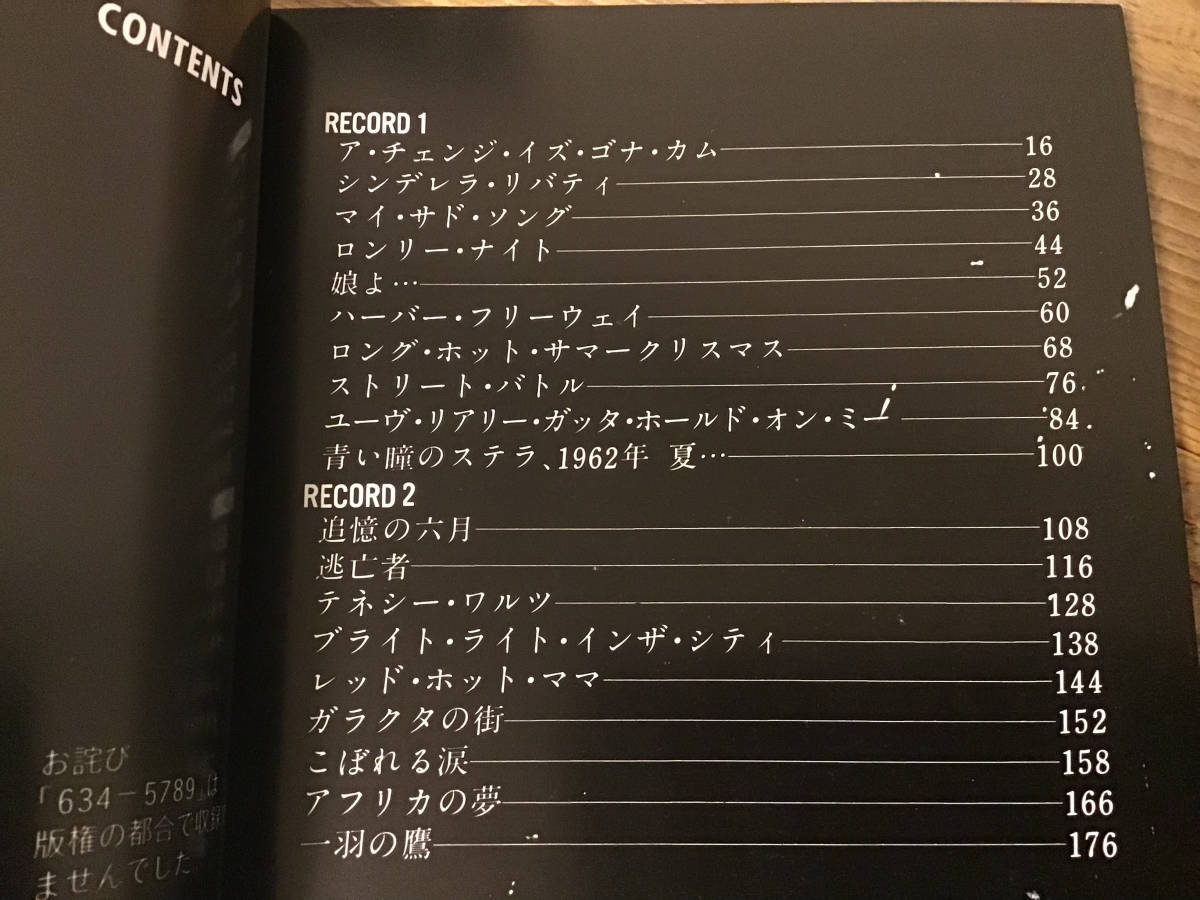 CONTENTS
RECORD 1
ア・チェンジ・イズ・ゴナ・カム 16
シンデレラ・リバティ 28
マイ・サド・ソング 36
ロンリー・ナイト 44
娘よ… 52
ハーバー・フリーウェイ 60
ロング・ホット・サマークリスマス 68
ストリート・バトル 76
ユーヴ・リアリー・ガッタ・ホールド・オン・ミー 84
青い瞳のステラ、1962年 夏… 100
RECORD 2
追憶の六月 108
逃亡者 116
テネシー・ワルツ 128
ブライト・ライト・インザ・シティ 138
レッド・ホット・ママ 144
ガラクタの街 152
こぼれる涙 158
アフリカの夢 166
一羽の鷹 176
お詫び
「634-5789」は
版権の都合で収録
ませんでした